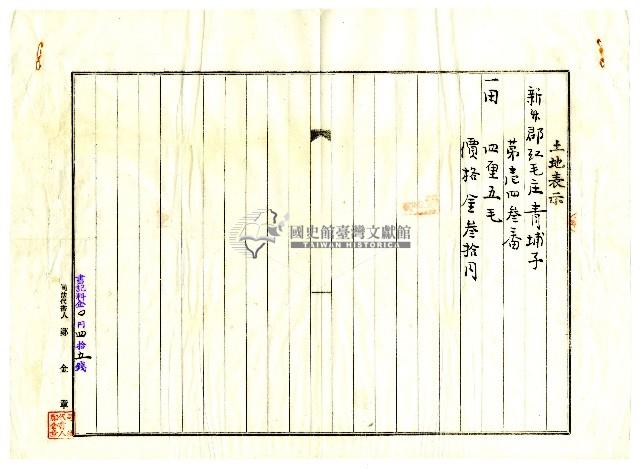 土地表示
新竹郡紅毛庄青埔子
第壱四叁番
一田 四厘五毛
價格金叁拾円
國史館臺灣文獻館
TAIWAN HISTORICA
書記料金〇円四拾五錢
司法代書人 鄭金章